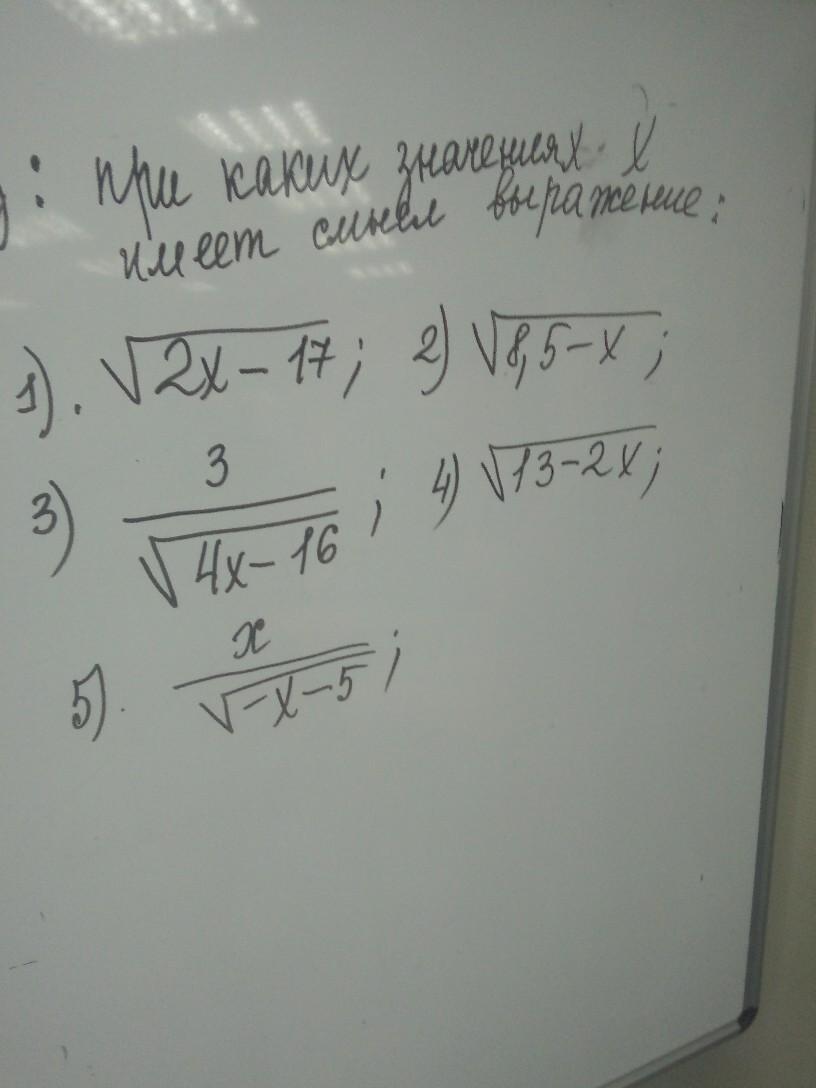 : при каких значениях x
имеет смысл выражение:
1). √2x-17; 2) √8,5-x;
3) 3/√4x-16; 4) √13-2x;
5). x/√-x-5;